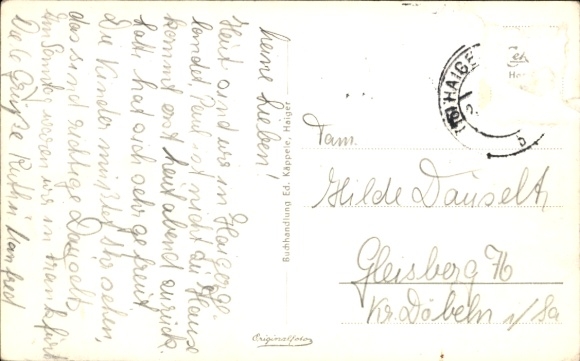 Meine Lieben!
Heut sind wir in Haiger ge-
landet. Paul ist nicht zu Hause
kommt erst heut abend zurück.
hat sich sehr gefreut
Die Kinder müßtet Ihr sehen,
das sind richtige Dauselts
Am Sonntag waren wir in Frankfurt
Grüße Ruth u. Manfred
Buchhandlung Ed. Käppele, Haiger
Originalfoto
HAIGER
Fam.
Hilde Dauselt
Gleisberg 76
Kr. Döbeln i/Sa